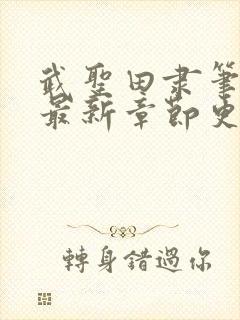 武聖田肃筆
最新章節史
轉身錯過你